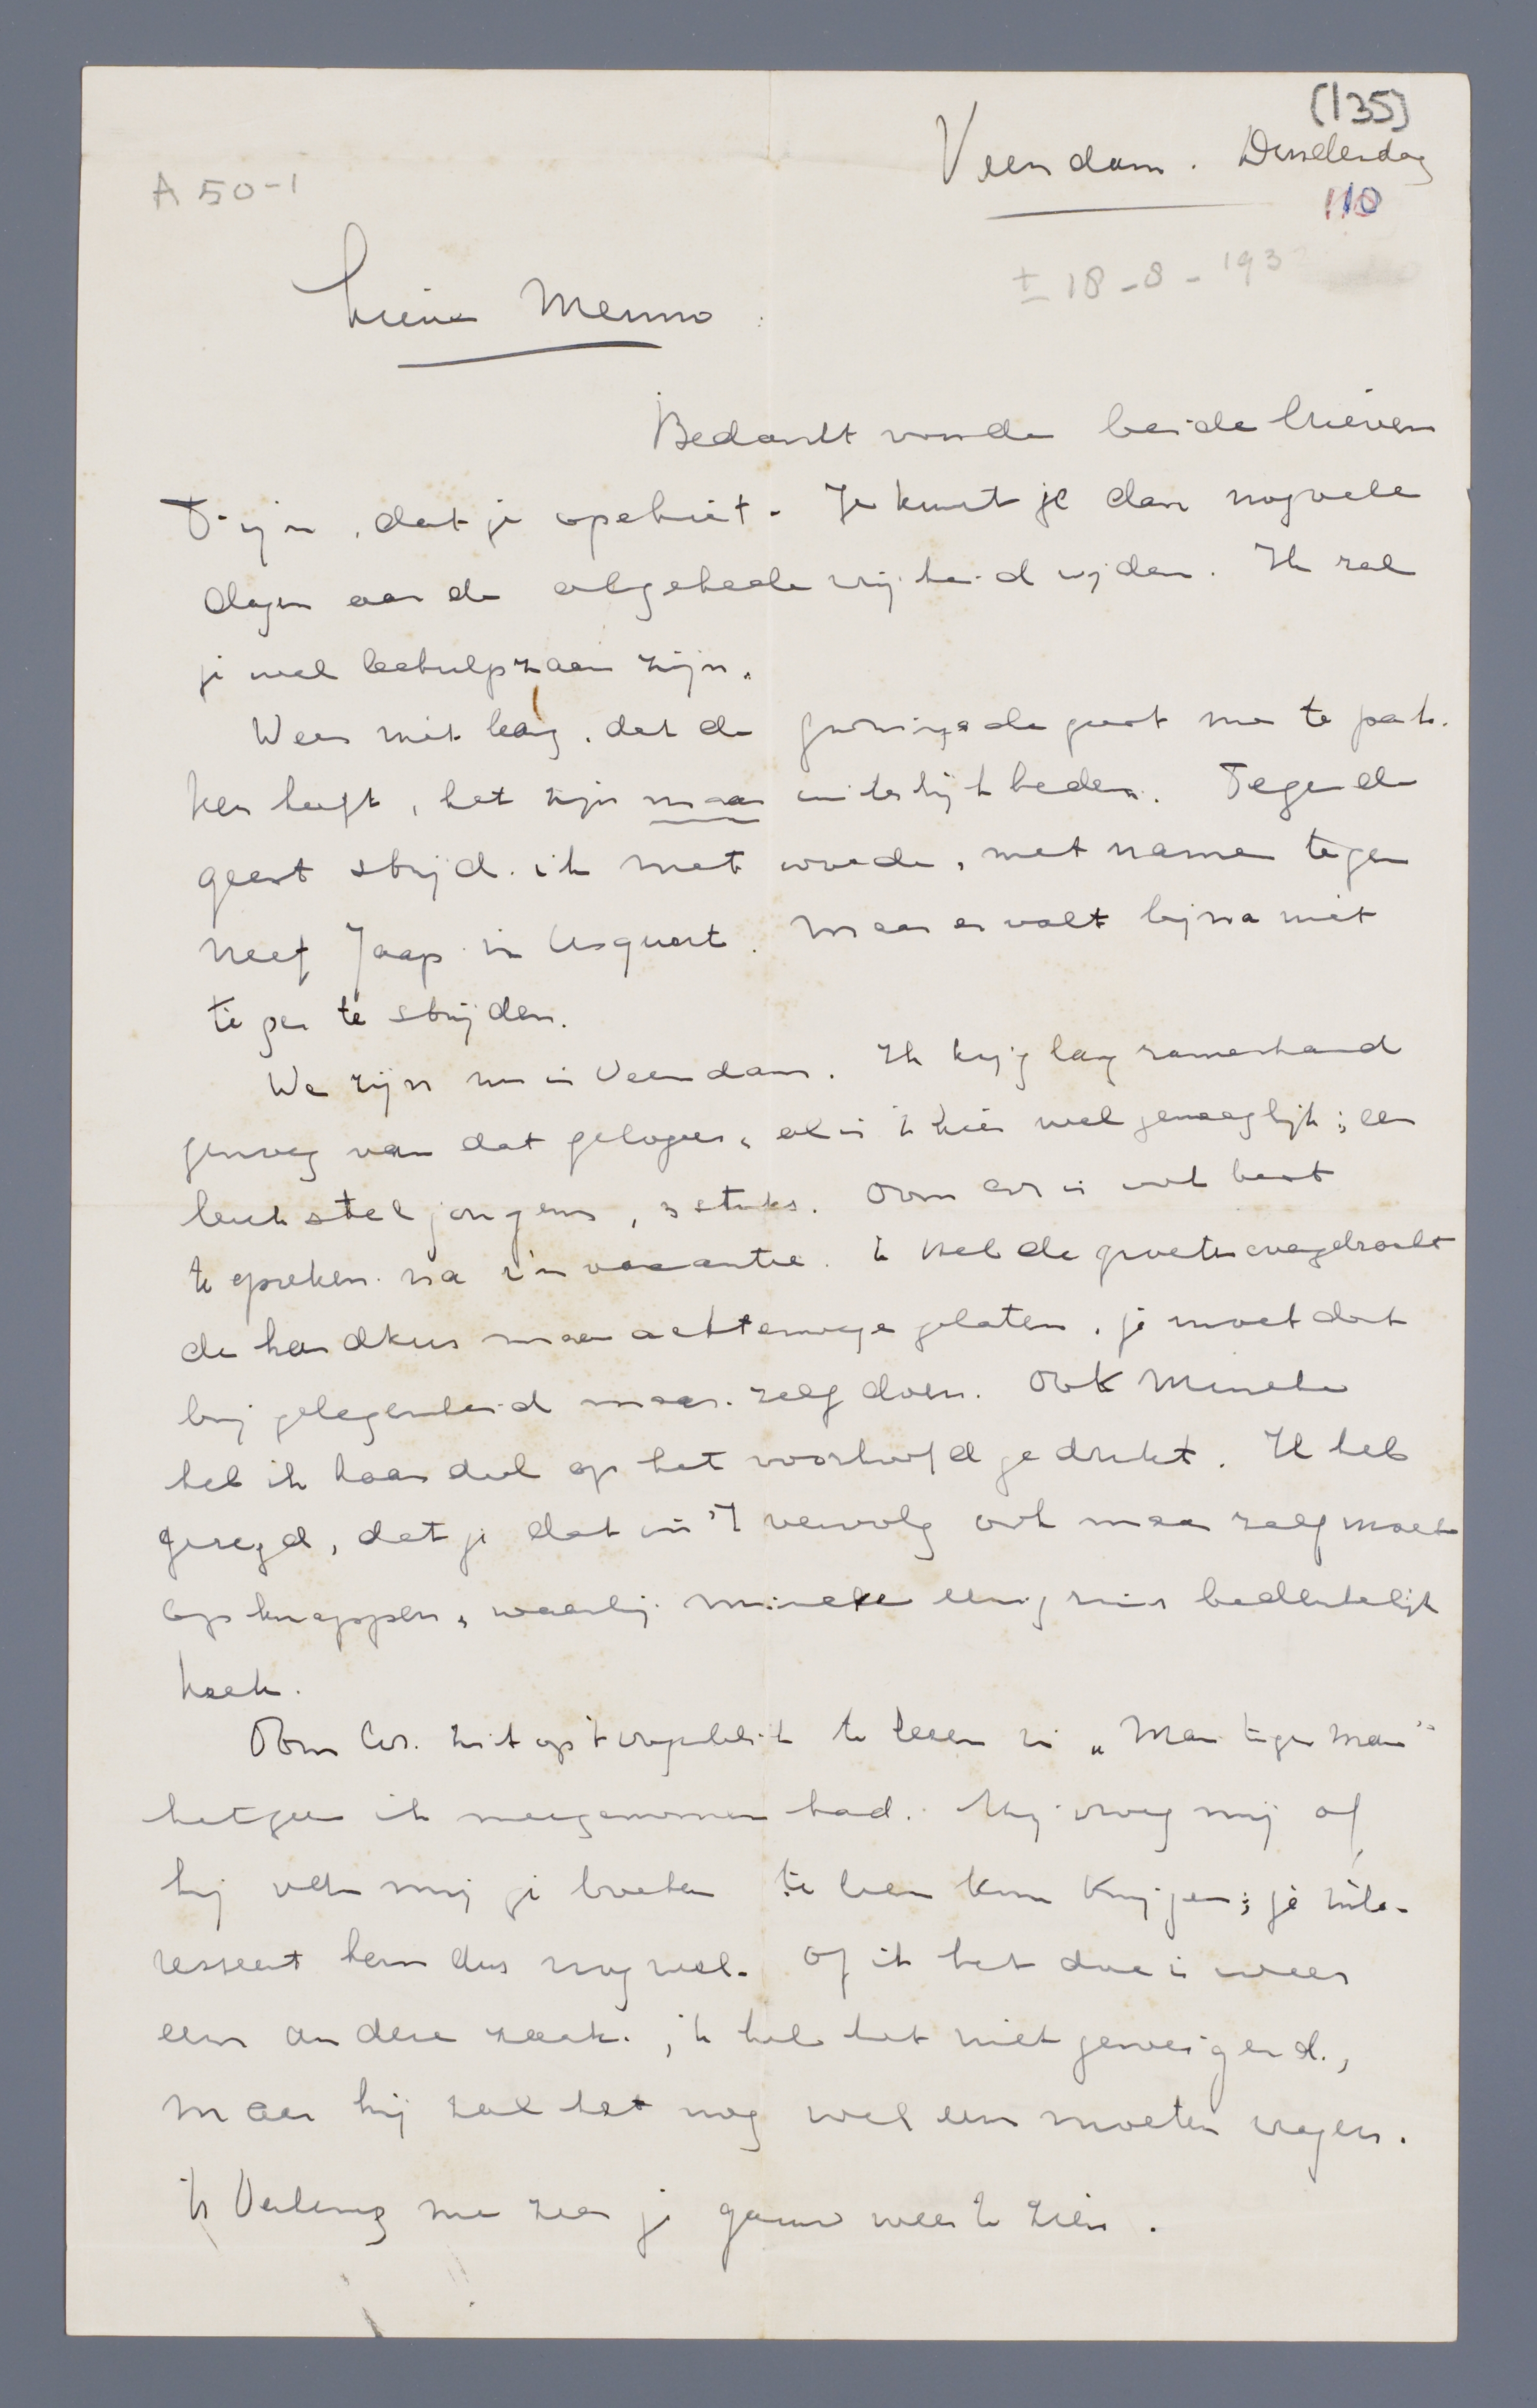 (135)
Veendam. Donderdag
A 50-1
110
± 18-8-193
Lieve Menno:
Bedankt voor de beide brieven
Fijn, dat je opschiet. Je kunt je dan nog vele
dagen aan de algeheele vrijheid wijden. Ik zal
je wel behulpzaam zijn.
Wees niet bang, dat de Groningsche geest me te pak-
ken heeft, het zijn maar uiterlijkheden. Tegen de
geest strijd ik met woede, met name tegen
neef Jaap in Usquert. Maar er valt bijna niet
tegen te strijden.
We zijn nu in Veendam. Ik krijg langzamerhand
genoeg van dat gelogeer, al is 't hier wel genoeglijk; een
leuk stel jongens, 3 stuks. Oom Cor is ook best
te spreken na z'n vacantie. Ik heb de groeten overgebracht
de handkus maar achterwege gelaten, je moet dat
bij gelegenheid maar zelf doen. Ook Mineke
heb ik haar deel op het voorhoofd gedrukt. Ik heb
gezegd, dat je dat in 't vervolg ook maar zelf moet
opknappen, waarbij Mineke eenigszins bedenkelijk
keek.
Oom Cor. zit op 't oogenblik te lezen in „Man tegen Man"
hetgeen ik meegenomen had. Hij vroeg mij of
hij van mij je boeken te leen kon krijgen; je inte-
resseert hem dus nog wel. Of ik het doe is weer
een andere zaak; ik heb het niet geweigerd,
maar hij zal het nog wel eens moeten vragen.
Ik verlang me zeer je gauw weer te zien.